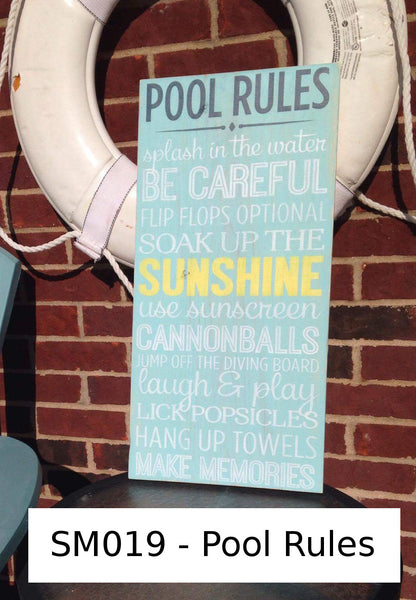 POOL RULES
splash in the water
BE CAREFUL
FLIP FLOPS OPTIONAL
SOAK UP THE
SUNSHINE
use sunscreen
CANNONBALLS
JUMP OFF THE DIVING BOARD
laugh & play
LICK POPSICLES
HANG UP TOWELS
MAKE MEMORIES
SM019 - Pool Rules